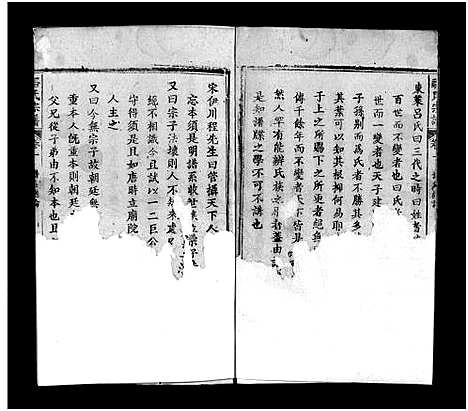 東萊呂氏曰三代之時曰姓者
百世而不變者也曰氏
世而一變者也天子建
子孫別而爲氏者不勝其多
其葉可以知其根抑何易耶
于上之所賜下之所更者絕無
傳千餘年而不變者天下皆是
然人罕有能辨氏族之
知是譜牒之學不可不講也
宋伊川程先生曰管攝天下人
忘本須是明譜系收世族立宗子
又曰宗子法壞則人不知來處
絕不相識今且試以一二巨公
守得須是且如唐時立廟院
人主之
又曰今無宗子故朝廷無
重本人既重本則朝廷
父兄從子弟由不知本也且